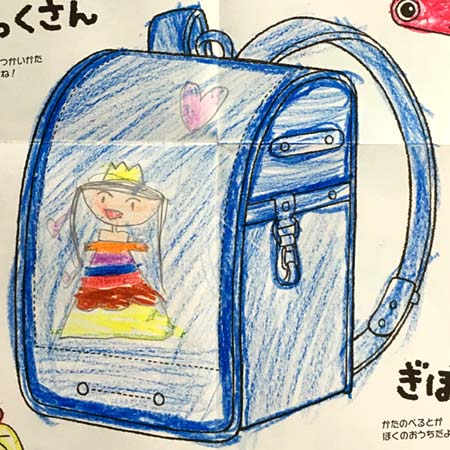 っくさん
つかいかた
ね!
ぎぼ
かたのべるとが
ぼくのおうちだよ